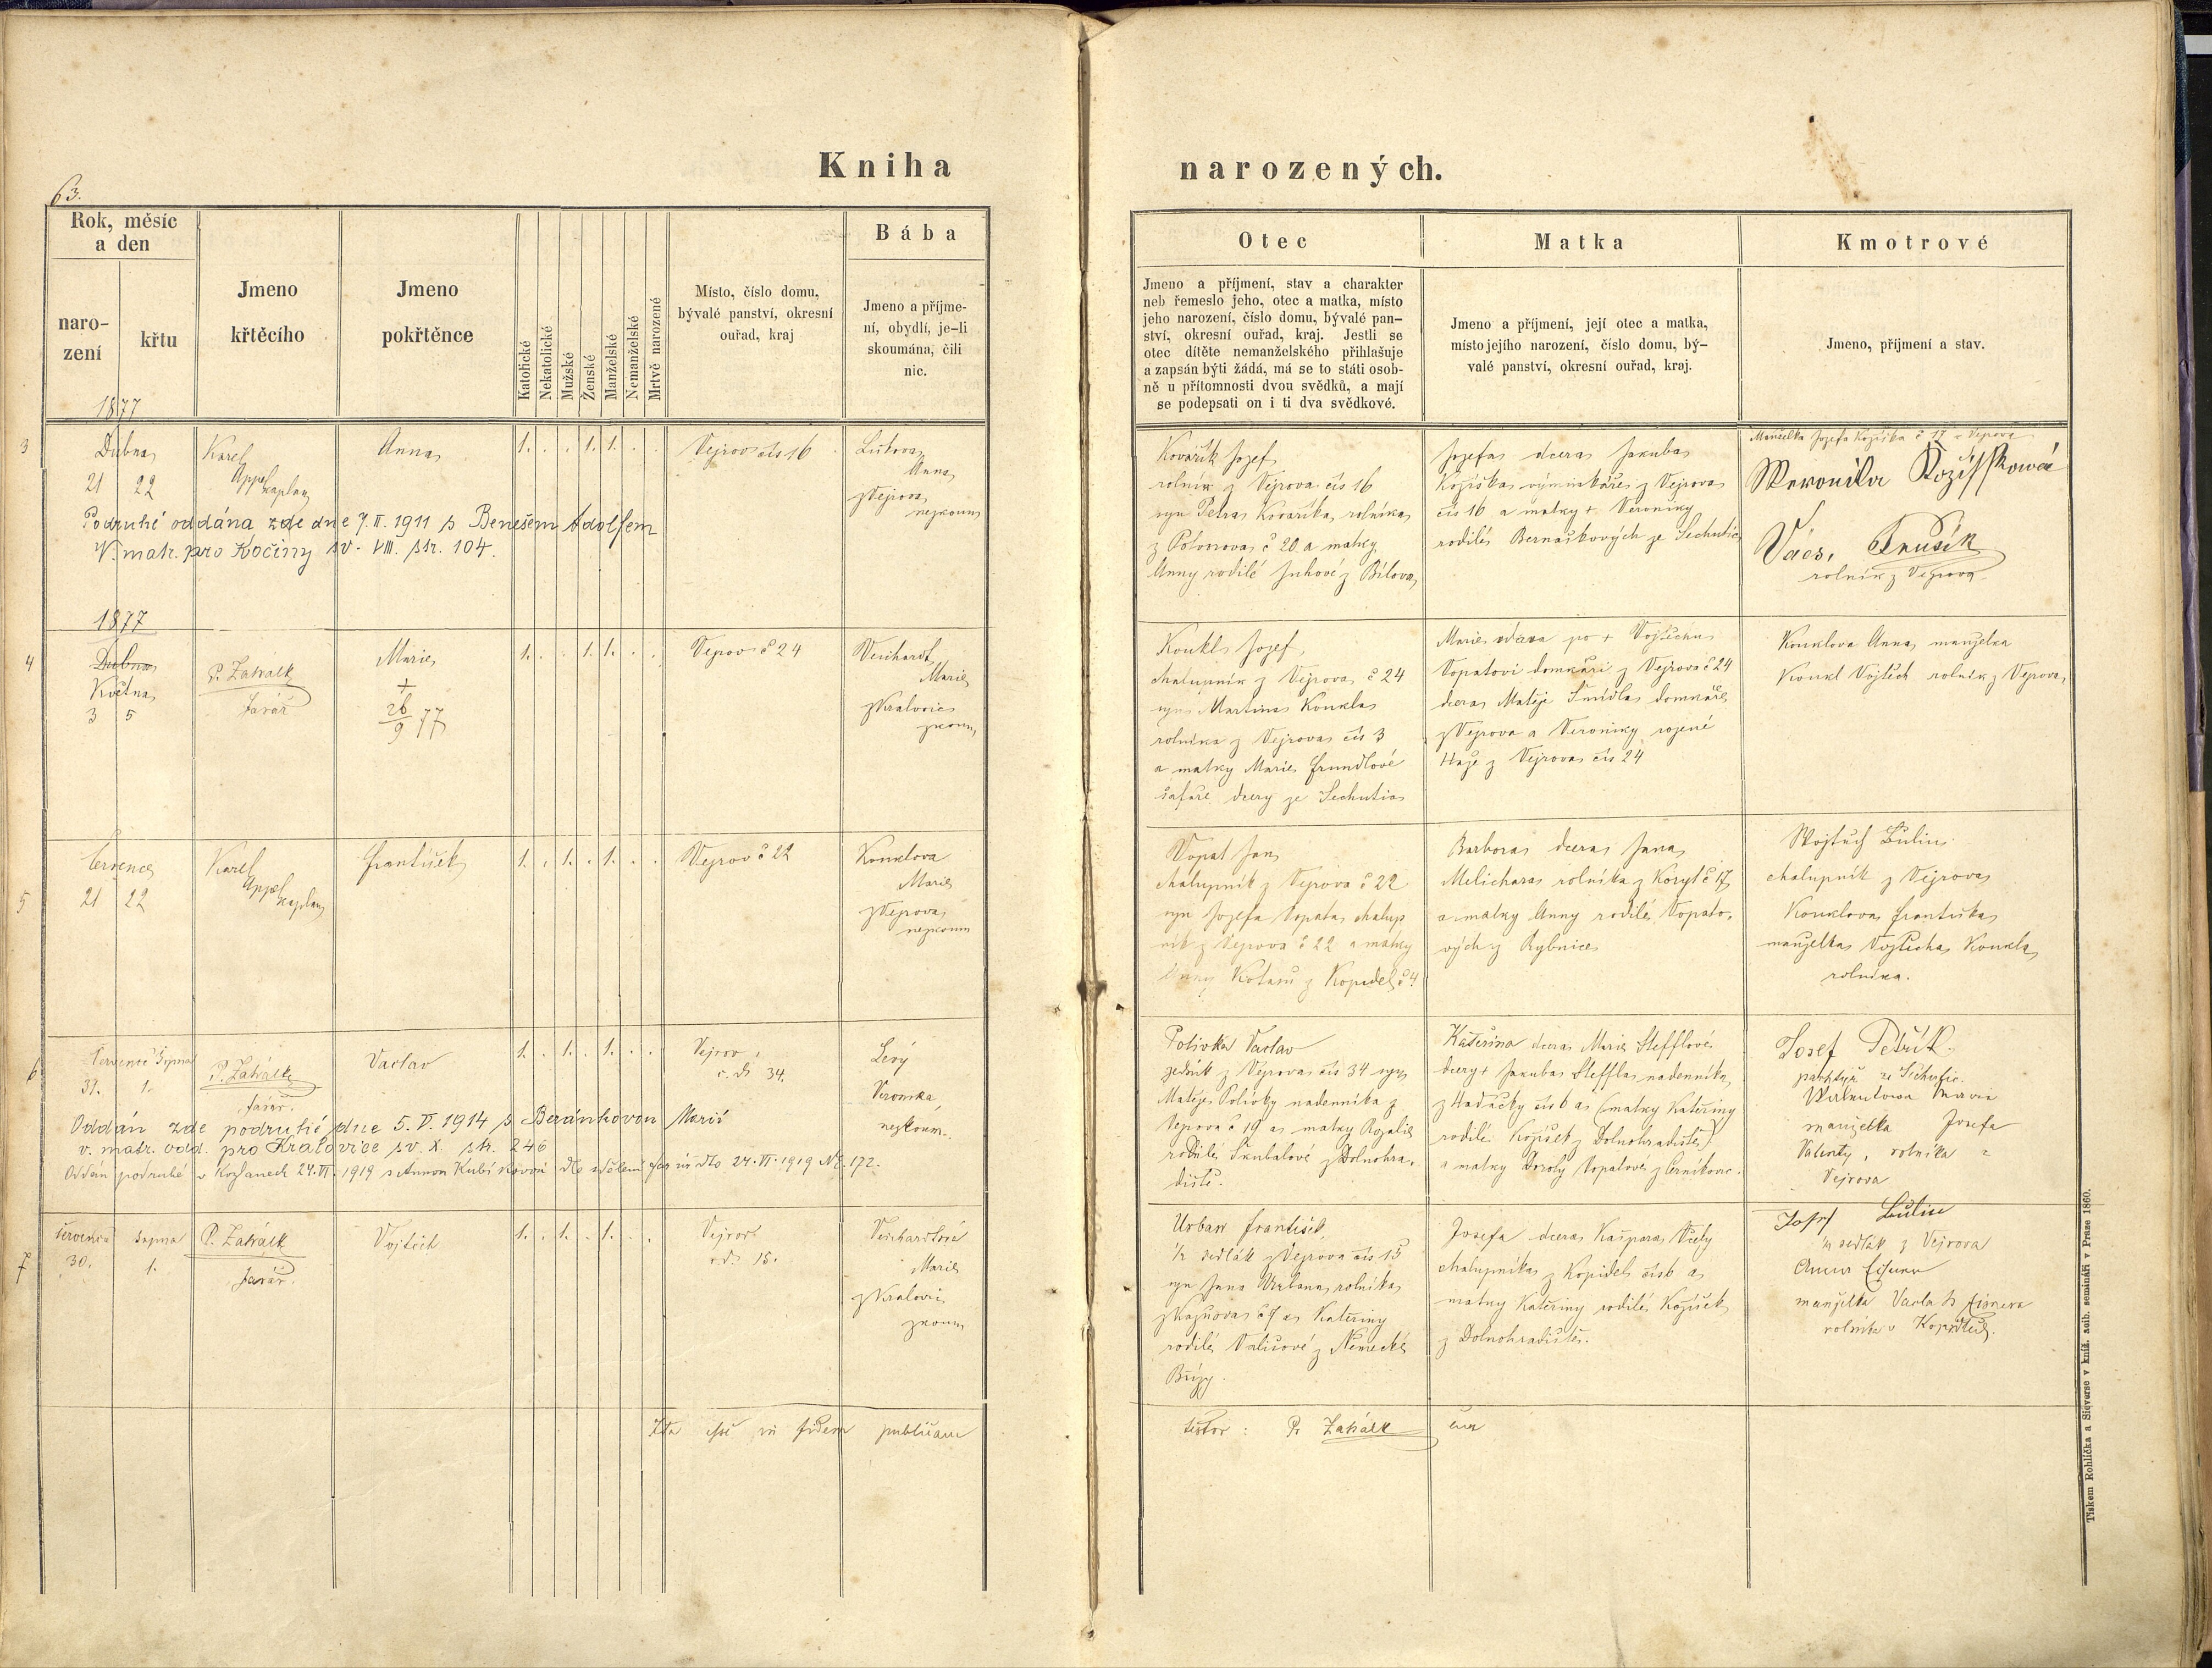 Kniha
narozených.
63.
Rok, měsíc
a den
naro-
zení
křtu
Jmeno
křtěcího
Jmeno
pokřtěnce
Katolické
Nekatolické
Mužské
Ženské
Manželské
Nemanželské
Mrtvě narozené
Místo, číslo domu,
bývalé panství, okresní
ouřad, kraj
Bába
Jmeno a příjme-
ní, obydlí, je-li
skoumána, čili
nic.
Otec
Jmeno a příjmení, stav a charakter
neb řemeslo jeho, otec a matka, místo
jeho narození, číslo domu, bývalé pan-
ství, okresní ouřad, kraj. Jestli se
otec dítěte nemanželského přihlašuje
a zapsán býti žádá, má se to státi osob-
ně u přítomnosti dvou svědků, a mají
se podepsati on i ti dva svědkové.
Matka
Jmeno a příjmení, její otec a matka,
místo jejího narození, číslo domu, bý-
valé panství, okresní ouřad, kraj.
Kmotrové
Jmeno, příjmení a stav.
1877
3
Dubna
21 22
Karel
Appel
kaplan
Anna
1. . . 1. 1. . .
Vejrov čís 16
Anna
z Vejrova
nezkoum
Podruhé oddána zde dne 7. II. 1911 s Benešem Adolfem
V. matr. pro Kočiny sv. VIII. str. 104.
Kovařík Josef
rolník z Vejrova čís 16
syn Petra Kovaříka, rolníka
č 20 a matky
Anny rodilé z Bílova
Josefa dcera Jakuba
Kožíška výminkáře z Vejrova
čís 16 a matky + Veroniky
rodilé Bernaškových ze Sechutic
Manželka Josefa Kožíška č 17 z Vejrova
Weronika
Václ.
rolník z Vejrova
1877
4
Dubna
Května
3 5
P. Zahálk
farář
Marie
+
26
9 77
1. . . 1. 1. . .
Vejrov č 24
Marie
z Kralovic
zkoum
Koukl Josef
chalupník z Vejrova č 24
syn Martina Koukla
rolníka z Vejrova čís 3
a matky Marie
dcery ze Sechutic
Marie vdova po + Vojtěchu
Vopatovi domkáři z Vejrova č 24
dcera Matěje Šmídla domkáře
z Vejrova a Veroniky rozené
z Vejrova čís 24
Kouklova Anna, manželka
Koukl Vojtěch rolník z Vejrova
5
července
21 22
Karel
Appel
kaplan
František
1. . 1. . 1. . .
Vejrov č 22
Kouklova
Marie
z Vejrova
nezkoum
Vopat Jan
chalupník z Vejrova č 22
syn Josefa Vopata, chalup
ník z Vejrova č 22 a matky
Anny z Kopidel č 4
Barbora dcera Jana
Melichara rolníka z Koryt č 17
a matky Anny rodilé Vopato-
vých z Rybnice
Wojtěch Bulín
chalupník z Vejrova
Kouklova Františka
manželka Vojtěcha Koukla
rolníka.
6
července Srpna
31. 1.
P. Zahálk
farář.
Vaclav
1. . 1. . 1. . .
Vejrov
č. d. 34.
Levý
Veronika,
nezkoum.
Oddán zde podruhé dne 5. V. 1914 s Beránkovou Marií
v. matr. odd. pro Kralovice sv. X. str. 246
Oddán podruhé v Kožlanech 24. VI. 1919 s Annou
24. VI. 1919 Nr. 172.
Polívka Vaclav
zedník z Vejrova čís 34 syn
Matěje Polívky nadenníka z
Vejrova č 19 a matky Rozalie
rodilé Škubalové z Dolnohra-
diště.
Kateřina dcera Marie Stefflové
dcery + Jakuba Steffla nadenníka
z Hadačky čís 6 a (matky Kateřiny
rodilé Kožíšek z Dolnohradiště)
a matky Doroty Vopatové z Černíkovic.
Josef Petřík
pachtýř ze Sechutic.
manželka Josefa
Valenty, rolníka z
Vejrova
7
července Srpna
30. 1.
P. Zahálk
farář.
Vojtěch
1. . 1. . 1. . .
Vejrov
č. d. 15.
Marie
z Kralovic
zkoum
Urban František,
½ sedlák z Vejrova čís 15
syn Jana Urbana, rolníka
z Kaznova č 9 a Kateřiny
rodilé z Německé
Břízy.
Josefa dcera Kašpara Včely
chalupníka z Kopidel čís 6 a
matky Kateřiny rodilé Kožíšek
z Dolnohradiště.
Josef Bulín
½ sedlák z Vejrova
manželka Vacla va Eisnera
rolníka v Kopidlech.
Ita esse in fidem publicam
testor: P. Zahálk
Tiskem Rohlíčka a Sieverse v kníž. acib. semináři v Praze 1860.